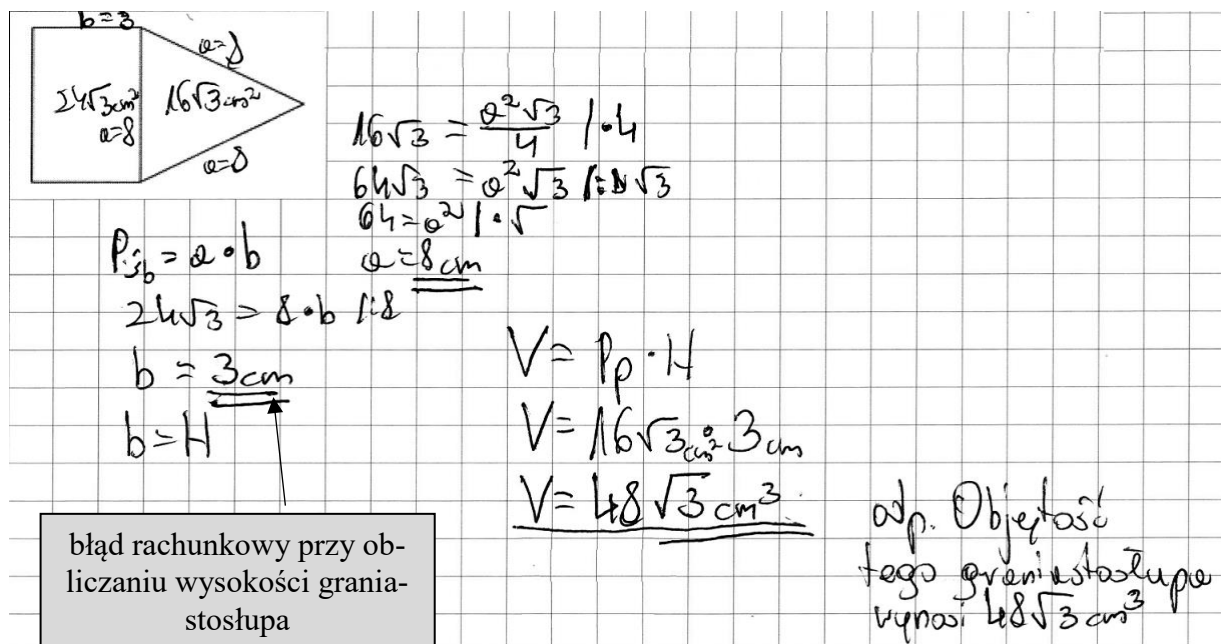 b=3
a=8
24√3cm²
a=8
16√3cm²
a=8
16√3 = a²√3/4 /·4
64√3 = a²√3 /:√3
64=a² /·√
a=8cm
Pśb = a·b
24√3 = 8·b /:8
b = 3cm
b=H
V= Pp·H
V= 16√3cm²·3cm
V= 48√3cm³
odp. Objętość
tego graniastosłupa
wynosi 48√3cm³
błąd rachunkowy przy ob-
liczaniu wysokości grania-
stosłupa